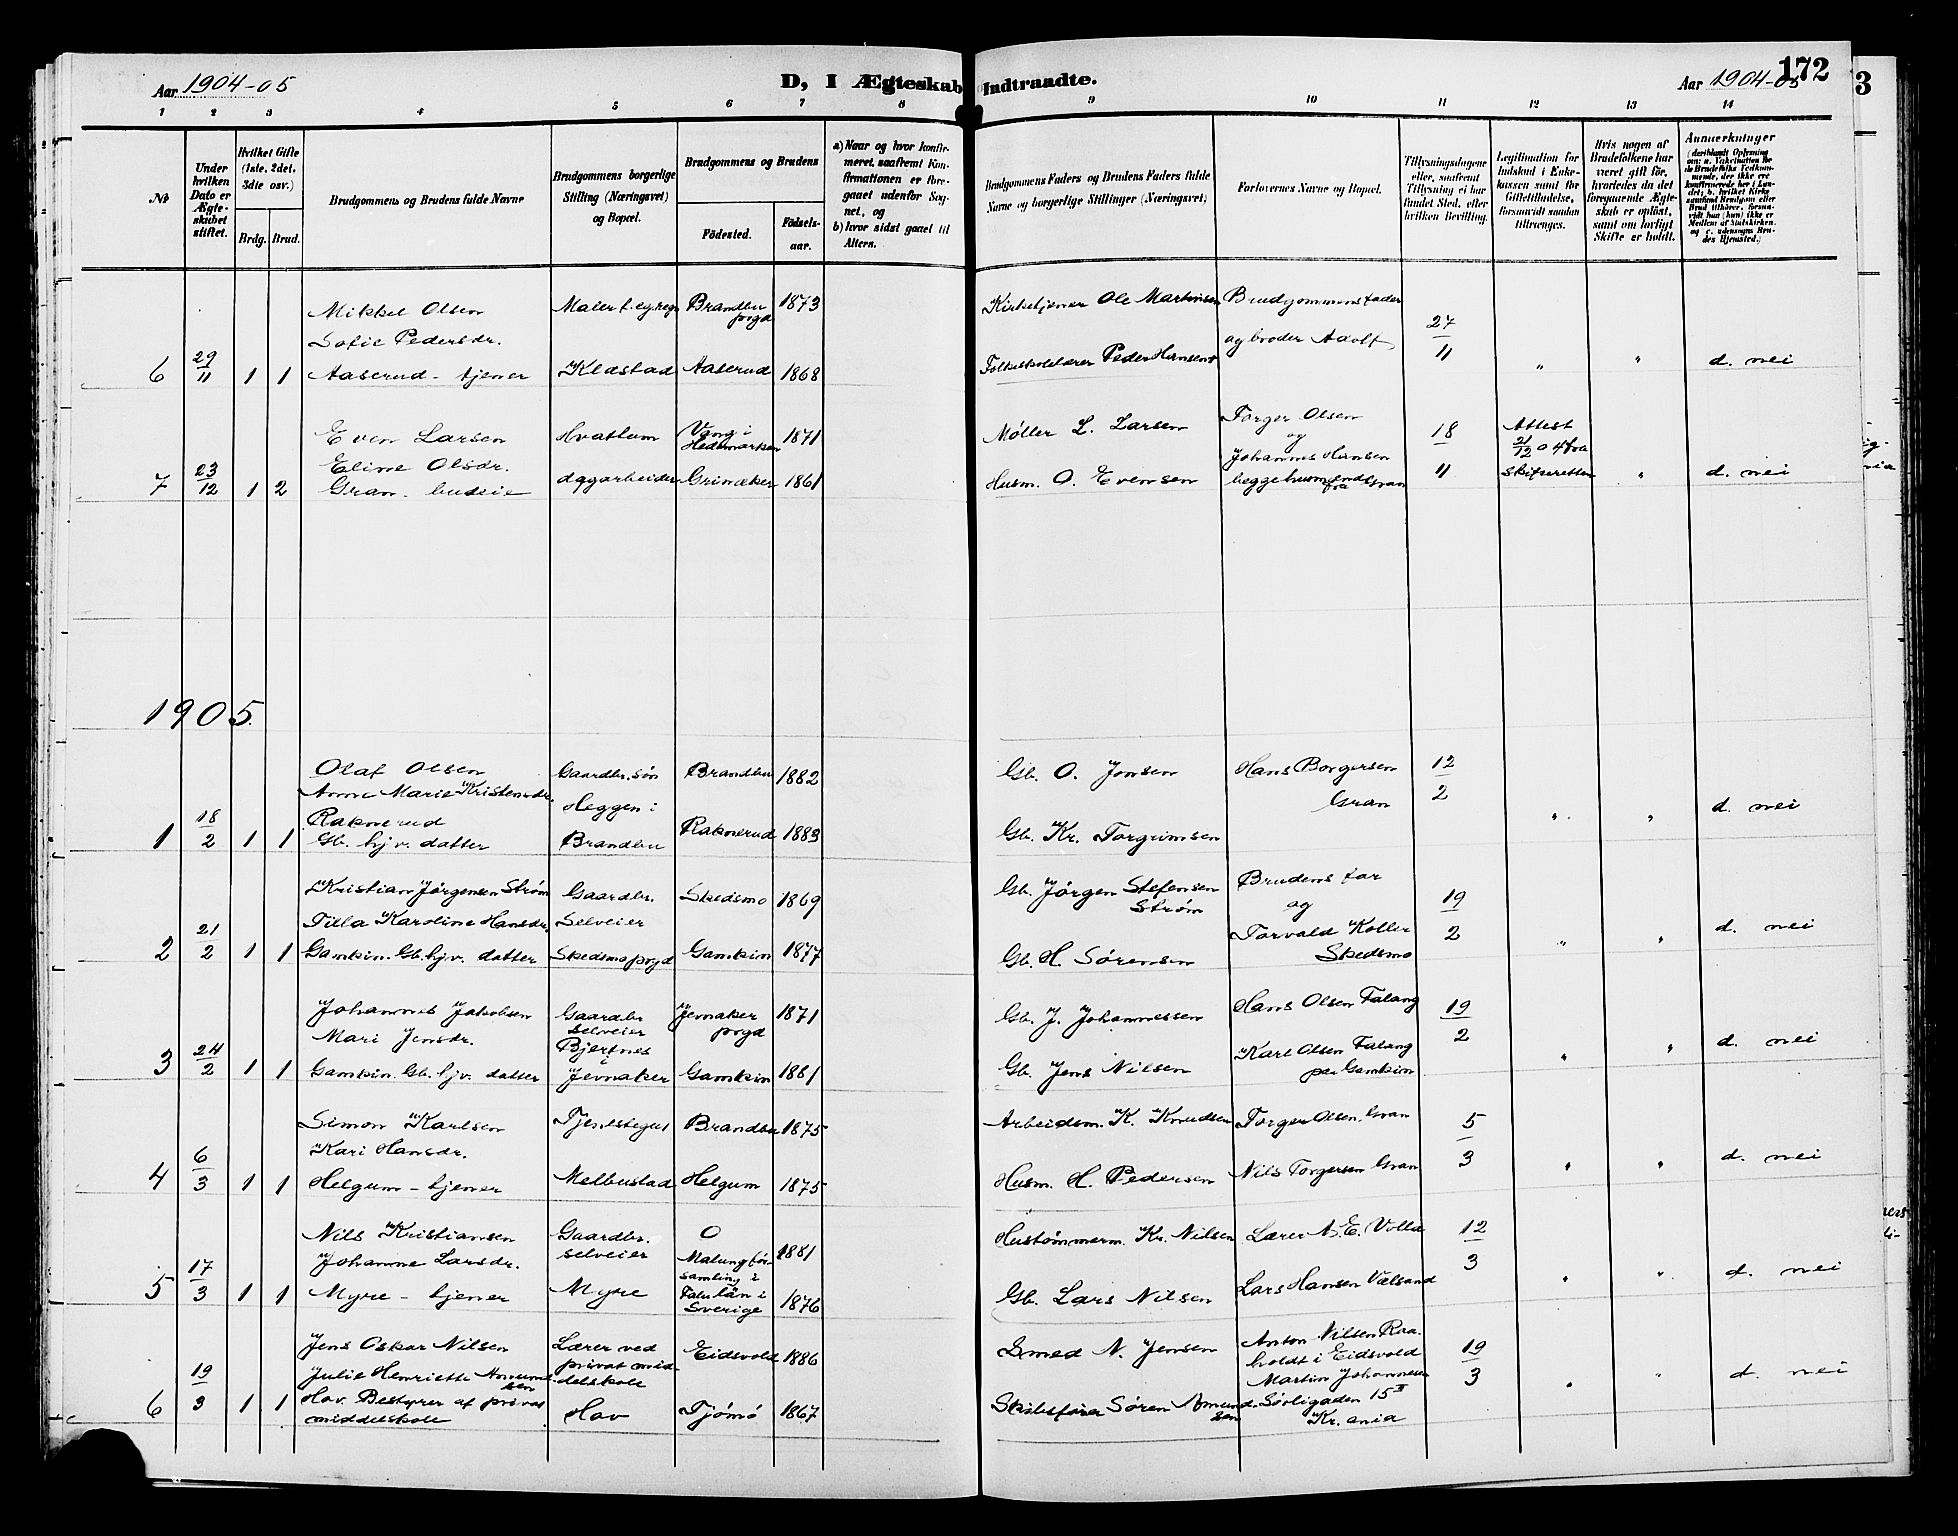 Aar 1904-05
D, I Ægteskab Indtraadte.
Aar 1904-05
172
3
1 2 3 4 5 6 7 8 9 10 11 12 13 14
No
Under hvilken Dato er Ægteskabet stiftet.
Hvilket Gifte (1ste, 2det, 3die osv.)
Brdg. Brud.
Brudgommens og Brudens fulde Navne
Brudgommens borgerlige Stilling (Næringsvei) og Bopæl.
Brudgommens og Brudens
Födested.
Födselsaar.
a) Naar og hvor konfirmeret, saafremt Konfirmationen er foregaaet udenfor Sognet, og
b) hvor sidst gaaet til Alters.
Brudgommens Faders og Brudens Faders fulde Navne og borgerlige Stillinger (Næringsvei)
Forlovernes Navne og Bopæl.
Tillysningsdagene eller, saafremt Tillysning ei har fundet Sted, efter hvilken Bevilling.
Legitimation for Indskud i Enkekassen samt for Giftetilladelse, forsaavidt saadan tiltrænges.
Hvis nogen af Brudefolkene har været gift för, hvorledes da det foregaaende Ægteskab er oplöst, samt om lovligt Skifte er holdt.
Anmærkninger
6 29/11 1 1
Mikkel Olsen
Sofie Pedersdr.
Aaserud - tjener
Maler f. eg. regn
Klæstad
Brandbu prgd 1873
Aaserud 1868
Kirketjener Ole Martinsen
Folkeskolelærer Peder Hansen
Brudgommens fader
og broder Adolf
27/11 " " d. nei
7 23/12 1 2
Even Larsen
Eline Olsdr.
Gran. budeie
Hvattum
dagarbeider
Vang i Hedemarken 1871
Grinaker 1861
Møller L. Larsen
Husm. O. Evensen
Torger Olsen
og
Johannes Hansen
begge husmænd fra Gran
18/11
Attest
21/12 04 fra
skifteretten
" d. nei
1905.
1 18/2 1 1
Olaf Olsen
Anne Marie Kristensdr.
Raknerud
Gb. hjv. datter
Gaardbr. søn
Heggen i
Brandbu
Brandbu 1882
Raknerud 1883
Gb. O. Jonsen
Gb. Kr. Torgrimsen
Hans Borgersen
Gran
12/2 " " d. nei
2 21/2 1 1
Kristian Jörgensen Strøm
Tilla Karoline Hansdr.
Gamkin. Gb. hjv. datter
Gaardbr.
Selveier
Skedsmo prgd
Skedsmo 1869
Gamkin 1877
Gb. Jörgen Stefensen
Strøm
Gb. H. Sörensen
Brudens far
og
Torvald Koller
Skedsmo
19/2 " " d. nei
3 24/2 1 1
Johannes Jakobsen
Mari Jensdr.
Gamkin. Gb. hjv. datter
Gaardbr
selveier
Bjertnes
i
Jevnaker
Jevnaker prgd 1871
Gamkin 1881
Gb. J. Johannessen
Gb. Jens Nilsen
Hans Olsen Falang
Karl Olsen Falang
paa Gamkin
19/2 " " d. nei
4 6/3 1 1
Simon Karlsen
Kari Hansdr.
Helgum - tjener
Tjenstegut
Melbustad
Brandbu 1875
Helgum 1875
Arbeidsm. K. Knudsen
Husm. H. Pedersen
Torger Olsen. Gran
Nils Torgersen Gran
5/3 " " d. nei
5 17/3 1 1
Nils Kristiansen
Johanne Larsdr.
Myre - tjener
Gaardbr.
selveier
Myre
O 1881
Malung forsamling i
Falu län i
Sverige 1876
Hustømmerm. Kr. Nilsen
Gb. Lars Nilsen
Lærer A. E. Volla
Lars Hansen Vælsand
12/3 " " d. nei
6 19/3 1 1
Jens Oskar Nilsen
Julie Henriette Amundsen
Hov. Bestyrer af privat
middelskole
Lærer ved
privat middelskole
Hov
Eidsvold 1886
Tjömö 1867
Smed N. Jensen
Skibsfører Sören Amundsen
Anton Nilsen Raaholdt i Eidsvold
Martin Johannesen
Sörligaden 15 II
Kr.ania
19/3 " " d. nei